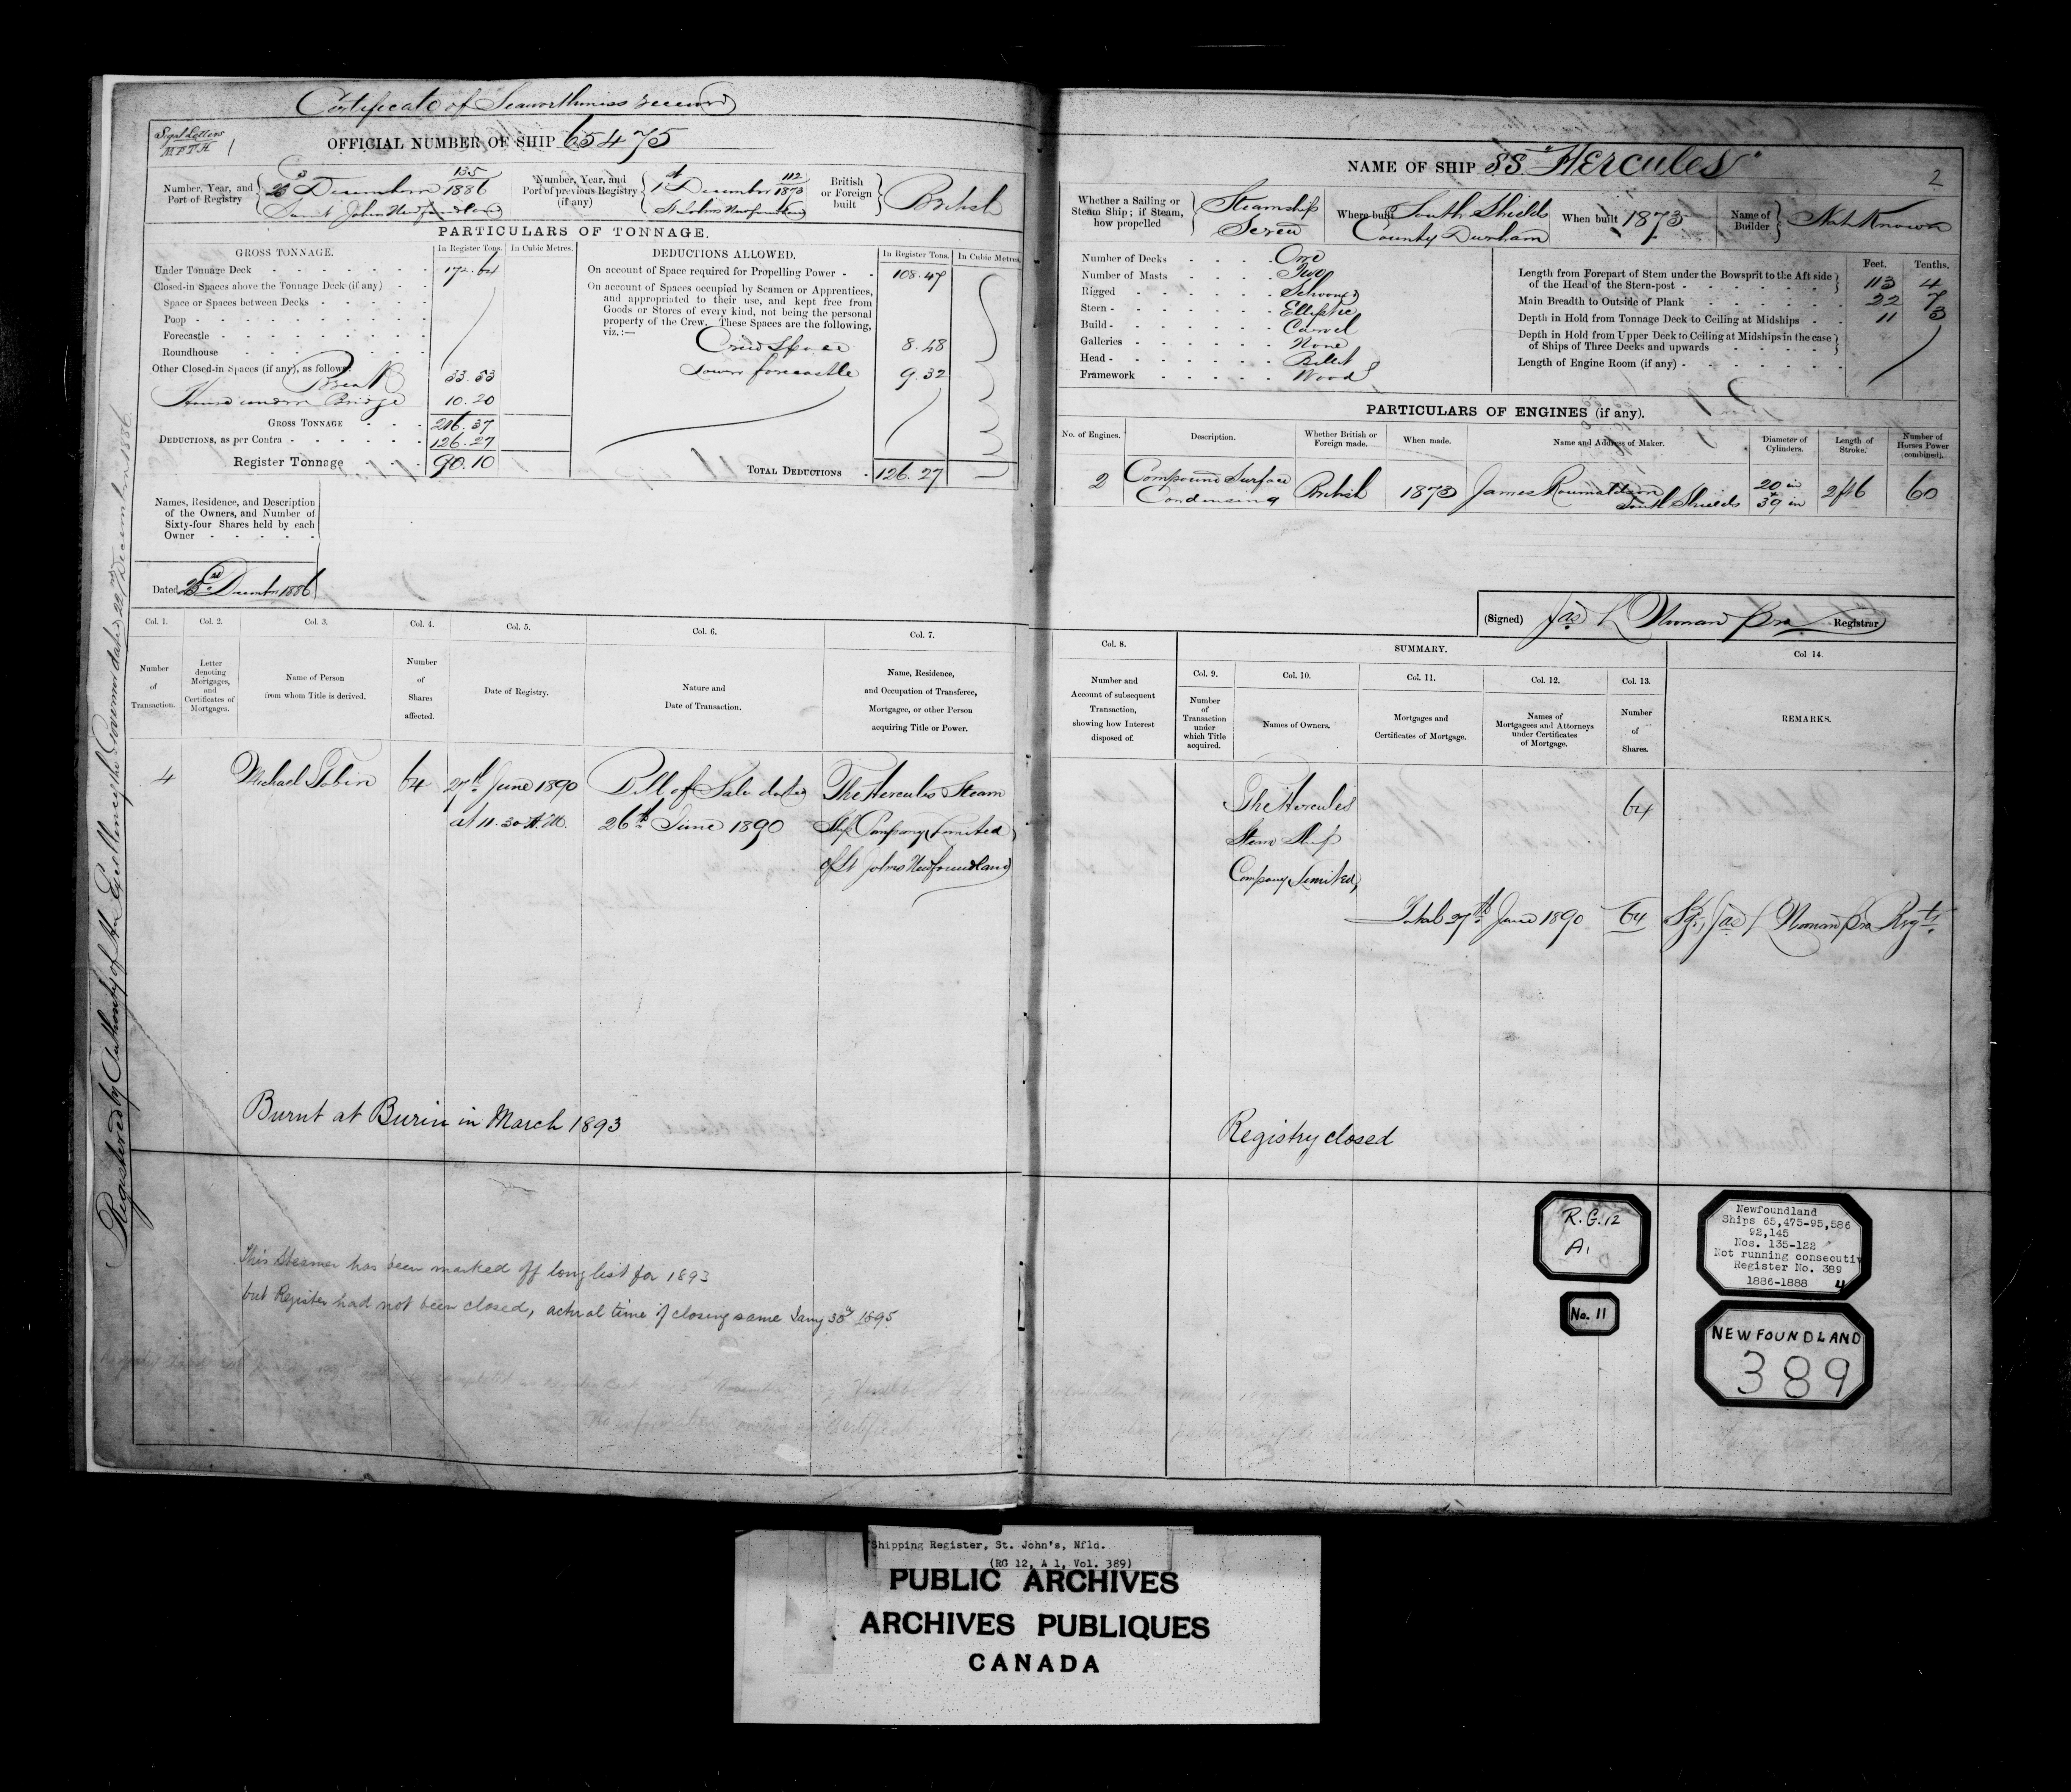 Certificate of Seaworthiness received
Signal Letters
OFFICIAL NUMBER OF SHIP 65475
Number, Year, and Port of Registry
135
1886
23 December
Saint Johns Newfoundland
Number, Year, and Port of previous Registry (if any)
112
1873
1st December
St Johns Newfoundland
British or Foreign built
British
PARTICULARS OF TONNAGE.
GROSS TONNAGE. In Register Tons. In Cubic Metres.
Under Tonnage Deck 172.64
Closed-in Spaces above the Tonnage Deck (if any)
Space or Spaces between Decks
Poop
Forecastle
Roundhouse
Other Closed-in Spaces (if any), as follows:
Break 33.53
under Bridge 10.20
GROSS TONNAGE 216.37
DEDUCTIONS, as per Contra 126.27
Register Tonnage 90.10
DEDUCTIONS ALLOWED. In Register Tons. In Cubic Metres.
On account of Space required for Propelling Power 108.47
On account of Spaces occupied by Seamen or Apprentices,
and appropriated to their use, and kept free from
Goods or Stores of every kind, not being the personal
property of the Crew. These Spaces are the following,
viz.:—
Crew Space 8.48
Lower forecastle 9.32
TOTAL DEDUCTIONS 126.27
Names, Residence, and Description
of the Owners, and Number of
Sixty-four Shares held by each
Owner
Dated 23rd December 1886
Registered by Authority of His Excellency the Governor dated 22nd December 1886
Col. 1. Col. 2. Col. 3. Col. 4. Col. 5. Col. 6. Col. 7.
Number of Transaction.
Letter denoting Mortgages, and Certificates of Mortgages.
Name of Person from whom Title is derived.
Number of Shares affected.
Date of Registry.
Nature and Date of Transaction.
Name, Residence, and Occupation of Transferee, Mortgagee, or other Person acquiring Title or Power.
4 Michael Tobin 64 27th June 1890 Bill of Sale dated The Hercules Steam
at 11.30 A.M. 26th June 1890 Ship Company Limited
of St Johns Newfoundland
Burnt at Burin in March 1893
This Steamer has been marked off long list for 1893
but Register had not been closed, actual time of closing same Jany 30th 1895
NAME OF SHIP SS "Hercules"
2
Whether a Sailing or Steam Ship; if Steam, how propelled
Steamship
Screw
Where built
South Shields
County Durham
When built 1873
Name of Builder
Not Known
Number of Decks One
Number of Masts Two
Rigged Schooner
Stern Elliptic
Build Carvel
Galleries None
Head Billet
Framework Wood
Feet. Tenths.
Length from Forepart of Stem under the Bowsprit to the Aft side
of the Head of the Stern-post 113 4
Main Breadth to Outside of Plank 22 7
Depth in Hold from Tonnage Deck to Ceiling at Midships 11 3
Depth in Hold from Upper Deck to Ceiling at Midships in the case
of Ships of Three Decks and upwards
Length of Engine Room (if any)
PARTICULARS OF ENGINES (if any).
No. of Engines. Description. Whether British or Foreign made. When made. Name and Address of Maker. Diameter of Cylinders. Length of Stroke. Number of Horses Power (combined).
2 Compound Surface Condensing British 1873 James South Shields 20 in 39 in 2ft6 60
(Signed) Jas L Noonan Pro Registrar
Col. 8. SUMMARY. Col 14.
Col. 9. Col. 10. Col. 11. Col. 12. Col. 13.
Number and Account of subsequent Transaction, showing how Interest disposed of.
Number of Transaction under which Title acquired.
Names of Owners.
Mortgages and Certificates of Mortgage.
Names of Mortgagees and Attorneys under Certificates of Mortgage.
Number of Shares.
REMARKS.
The Hercules 64
Steam Ship
Company Limited
Total 27th June 1890 64 Sgd, Jas L Noonan Pro Regtr
Registry closed
R.G.12
A1
No. 11
Newfoundland
Ships 65,475-95,586
92,145
Nos. 135-122
Not running consecutiv
Register No. 389
1886-1888 4
NEWFOUNDLAND
389
Shipping Register, St. John's, Nfld.
(RG 12, A 1, Vol. 389)
PUBLIC ARCHIVES
ARCHIVES PUBLIQUES
CANADA